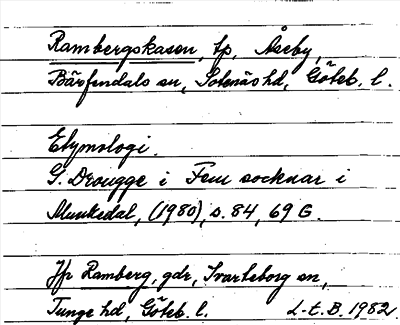 Rambergskasen, tp, Åseby,
Bärfendals sn, Sotenäs hd, Göteb. l.
Etymologi.
G. Drougge i Fem socknar i
Munkedal, (1980), s. 84, 69 G.
Jfr Ramberg, gdr, Svarteborg sn,
Tunge hd, Göteb. l. L-E. B. 1982